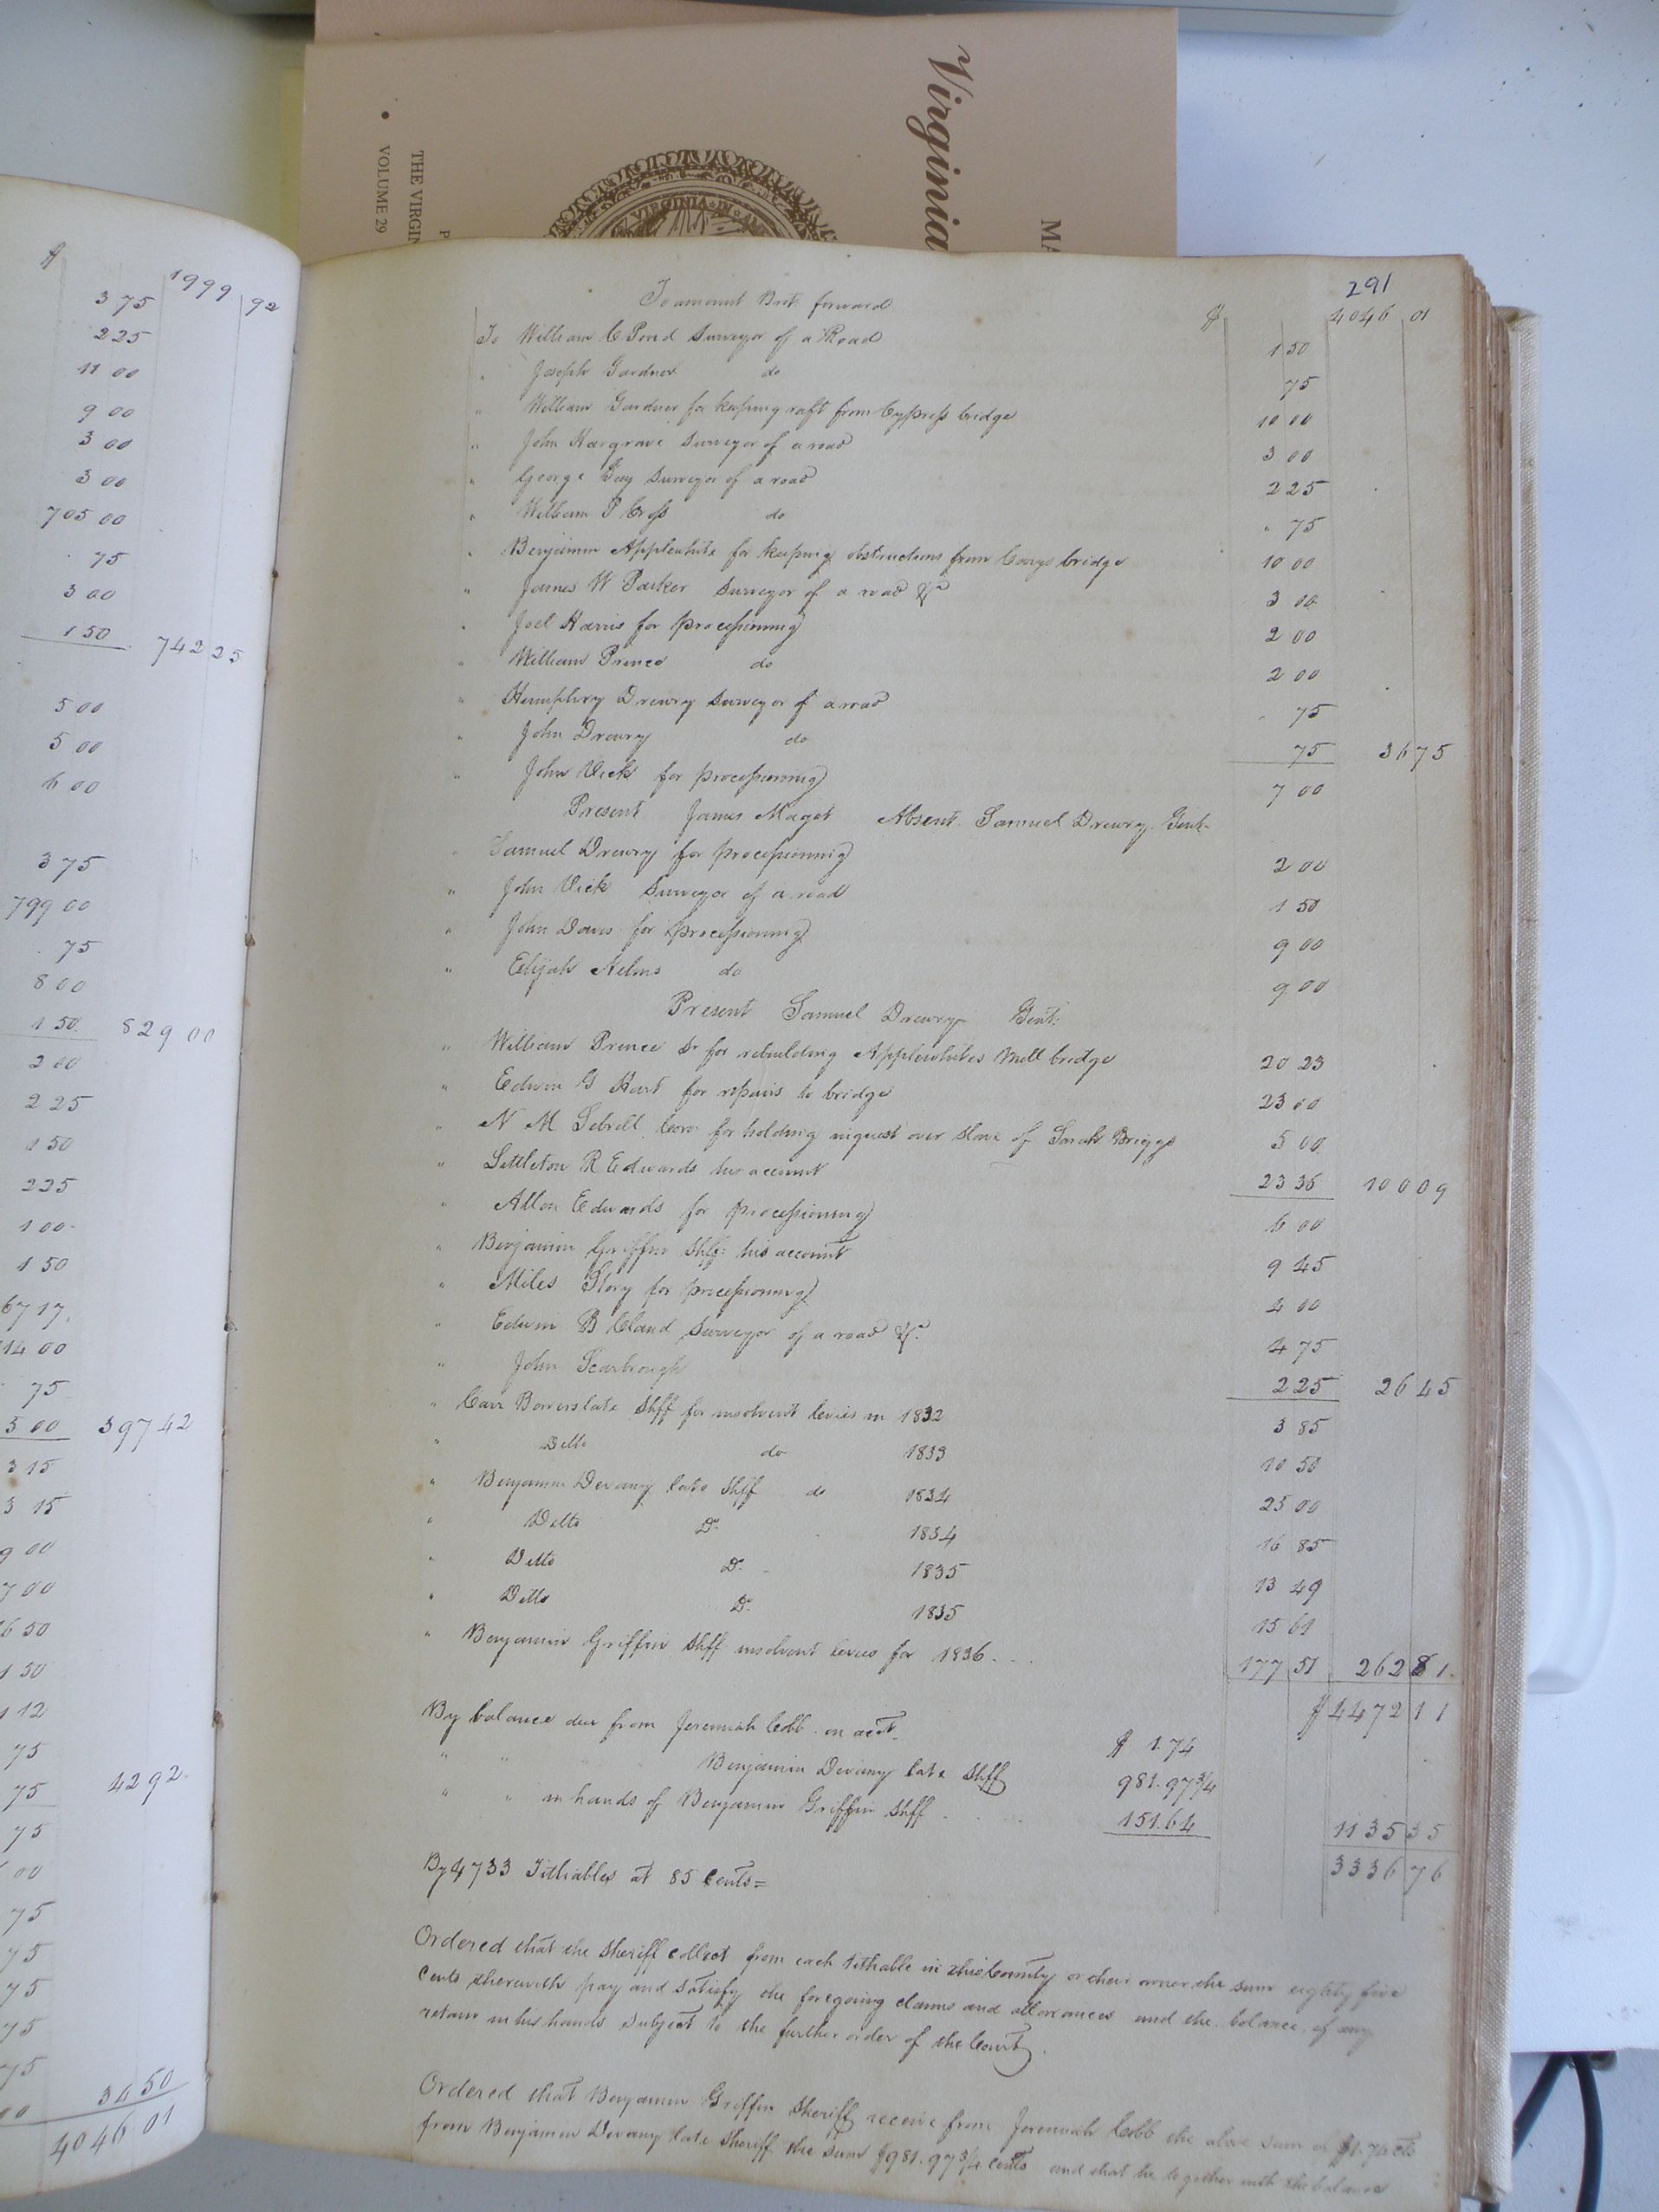 Virginia
MA
THE VIRGIN
VOLUME 29
VIRGINIA IN
$ 1999 92
3 75
2 25
11 00
9 00
3 00
3 00
705 00
75
3 00
1 50 742 25
5 00
5 00
6 00
3 75
799 00
75
8 00
1 50 829 00
2 00
2 25
1 50
2 25
1 00
1 50
67 17
14 00
75
5 00 397 42
3 15
3 15
9 00
7 00
6 50
1 50
1 12
75
75 42 92
75
00
75
75
75
75
75
00 34 50
4046 01
291
To amount Brt forward $ 4046 01
To William C Pond Surveyor of a Road 1 50
" Joseph Gardner do 75
" William Gardner for keeping raft from Cypress bridge 10 00
" John Hargrave Surveyor of a road 3 00
" George Gay Surveyor of a road 2 25
" William P Cross do " 75
" Benjamin Applewhite for keeping obstructions from Carys bridge 10 00
" James W Parker Surveyor of a road &c 3 00
" Joel Harris for processioning 2 00
" William Prince do 2 00
" Humphrey Drewry Surveyor of a road 75
" John Drewry do 75 36 75
" John Vick for processioning 7 00
Present James Maget Absent Samuel Drewry Gent.
" Samuel Drewry for processioning 2 00
" John Vick Surveyor of a road 1 50
" John Davis for processioning 9 00
" Elijah Nelms do 9 00
Present Samuel Drewry Gent:
" William Prince Sr for rebuilding Applewhites Mill bridge 20 23
" Edwin G Hart for repairs to bridge 23 00
" N M Sebrell Coro for holding inquest over slave of Sarah Briggs 5 00
" Littleton R Edwards his account 23 36 100 09
" Allen Edwards for processioning 6 00
" Benjamin Griffin Shff: his account 9 45
" Miles Story for processioning 4 00
" Edwin B Claud Surveyor of a road &c 4 75
" John Scarbrough 2 25 26 45
" Carr Bowers late Shff for insolvent levies in 1832 3 85
" Ditto do 1833 10 50
" Benjamin Devany late Shff do 1834 25 00
" Ditto Do 1834 16 85
" Ditto Do 1835 13 49
" Ditto Do 1835 15 61
" Benjamin Griffin Shff insolvent levies for 1836 177 51 262 81
$ 4472 11
By balance due from Jeremiah Cobb on acct. $ 1.74
" " Benjamin Devany late Shff 981.97 3/4
" " in hands of Benjamin Griffin Shff 151.64 1135 35
3336 76
By 4733 Tithables at 85 Cents=
Ordered that the Sheriff collect from each tithable in this County or their owner the sum eighty five
Cents therewith pay and satisfy the foregoing claims and allowances and the balance if any
retain in his hands subject to the further order of the Court.
Ordered that Benjamin Griffin Sheriff receive from Jeremiah Cobb the above sum of $1.74 cts
from Benjamin Devany late Sheriff the sum $981.97 3/4 cents and that he together with the balance